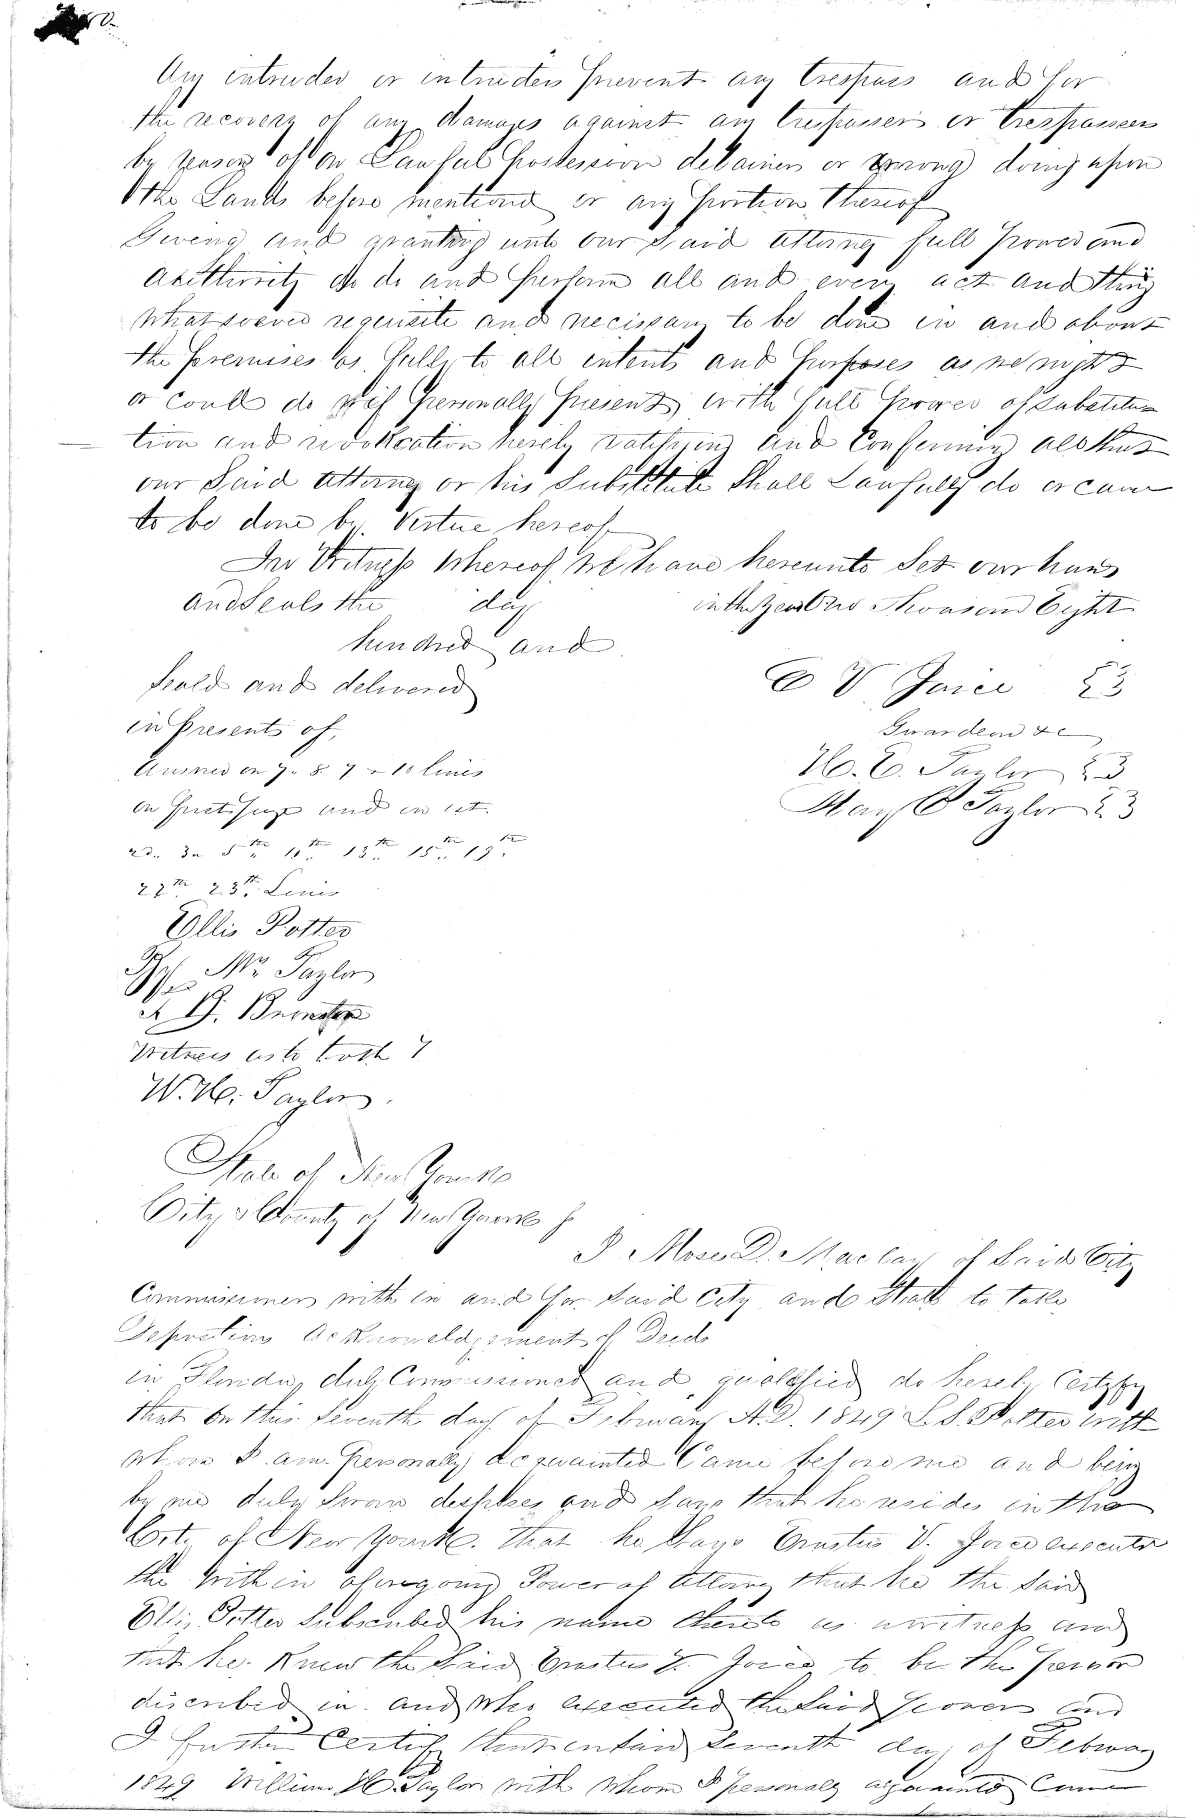 Any intruder or intruders prevent any trespass and for
the recovery of any damages against any trespasser or trespassers
by reason of on Lawful possession detainer or wrong doing upon
the Lands before mentiond or any portion thereof
Giveng and granting unto our said attorney full power and
authority to do and perform all and every act and thing
whatsoever requisite and necissary to be done in and about
the premises as fully to all intents and purposes as we might
or could do if personally present with full power of substitu
tion and revokcation hereby ratifying and confirming all that
our Said attorney or his Substitute Shall Lawfully do or cause
to be done by Virtue hereof
In Witness Whereof We have hereunto Set our hans
and Seals the day in the year One Thousand Eight
hundred and
Seald and delivered
in presents of,
E V Joice
Guardean &c
H. E. Taylor
Mary C Taylor
on 7. 8. 9 - 10 lines
on first page and on 1st.
2d. 3d 5th 11th 13th 15th 19th
22th 23th Lines
Ellis Potter
Wm Taylor
Witness as to both
W. H. Taylor.
State of New Yourk
City & County of New Yourk
I Moses D. Maclay of Said City
Commissioner with in and for Said City and State to take
Depostions Acknoweldgement of Deeds
in Florida, duly Commissioned and qualified do hereby Certify
that on this Seventh day of February A.D. 1849 Potter with
whom I am personally acquainted Came before me and being
by me duly Sworn and says that he resides in the
City of New Yourk. that he Says Erastus V. Joice execute
the With in aforegoing Power of Attorney that he the Said
Ellis Potter Subscribed his name thereto as a witness and
that he Knew the Said Erastus V. Joice to be the person
discribed in and who executed the Said power and
I further Certify that on Said Seventh day of Februay
1849 William H. Taylor with whom I personaly aquainted Came